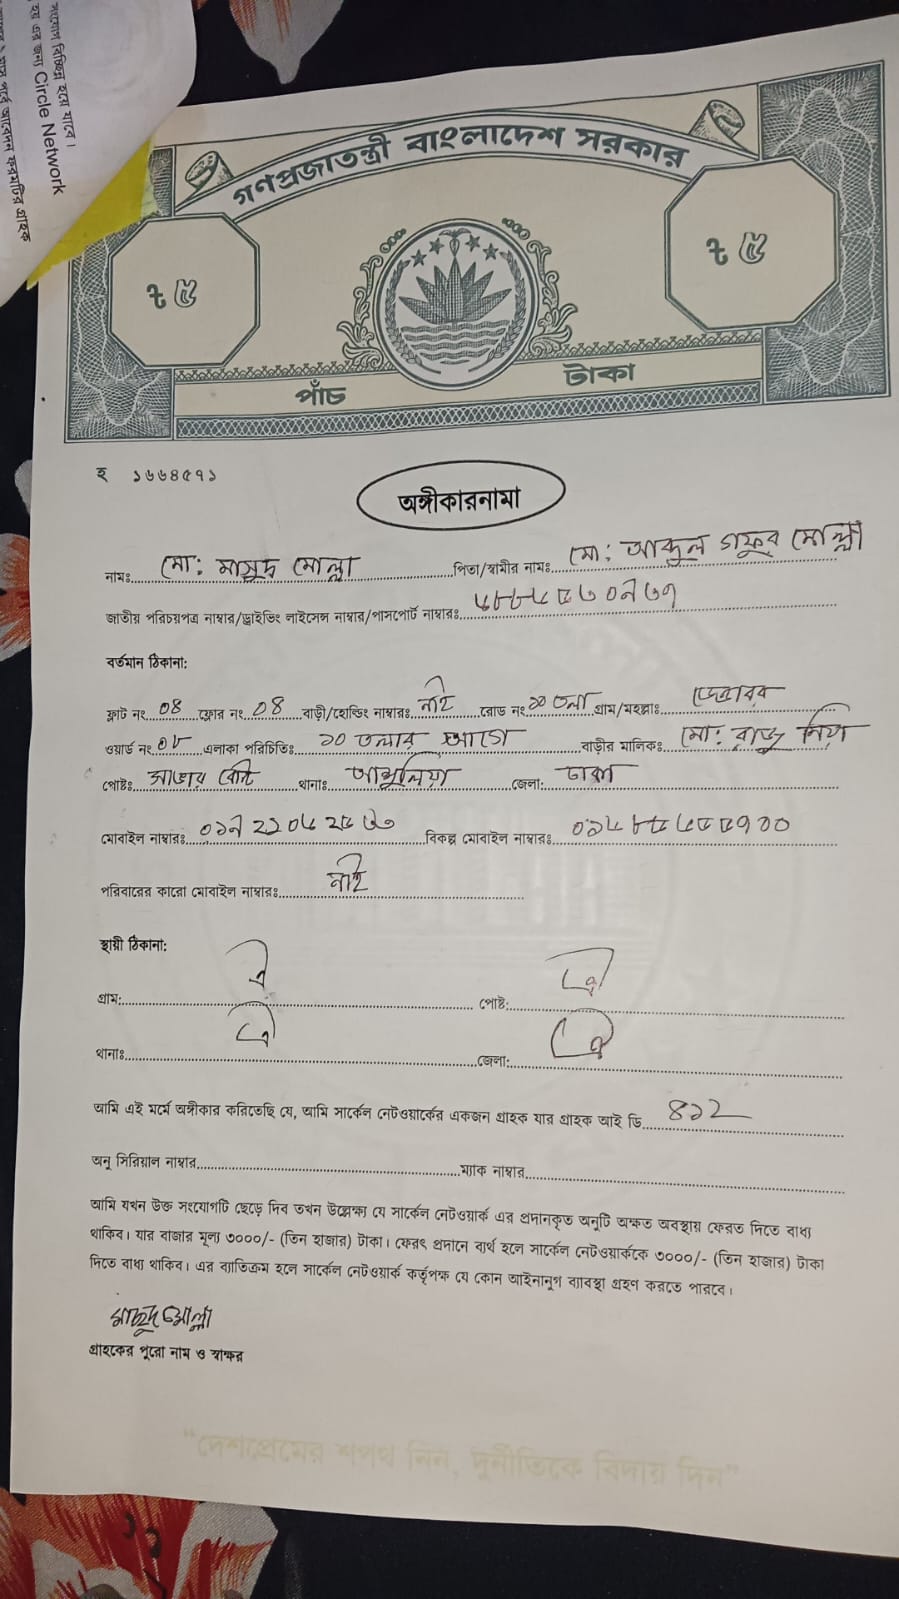 সংযোগ বিচ্ছিন্ন হয়ে যাবে।
হয় এর জন্য Circle Network
পূর্বে আবেদন ফরমটির গ্রাহক
গণপ্রজাতন্ত্রী বাংলাদেশ সরকার
৳ ৫
৳ ৫
পাঁচ টাকা
হ ১৬৬৪৫৭১
অঙ্গীকারনামা
নামঃ মো: মাসুদ মোল্লা পিতা/স্বামীর নামঃ মো: আব্দুল গফুর মোল্লা
জাতীয় পরিচয়পত্র নাম্বার/ড্রাইভিং লাইসেন্স নাম্বার/পাসপোর্ট নাম্বারঃ
বর্তমান ঠিকানা:
ফ্লাট নং ০৪ ফ্লোর নং ০৪ বাড়ী/হোল্ডিং নাম্বারঃ নাই রোড নং ১০ তলা গ্রাম/মহল্লাঃ
ওয়ার্ড নং ০৮ এলাকা পরিচিতিঃ ১০ তলার আগে বাড়ীর মালিকঃ মো: রাজু মিয়া
পোষ্টঃ সাভার কেন্ট থানাঃ আশুলিয়া জেলা: ঢাকা
মোবাইল নাম্বারঃ বিকল্প মোবাইল নাম্বারঃ
পরিবারের কারো মোবাইল নাম্বারঃ নাই
স্থায়ী ঠিকানা:
গ্রাম: ঐ পোষ্ট: ঐ
থানাঃ ঐ জেলা: ঐ
আমি এই মর্মে অঙ্গীকার করিতেছি যে, আমি সার্কেল নেটওয়ার্কের একজন গ্রাহক যার গ্রাহক আই ডি ৪১২
অনু সিরিয়াল নাম্বার ম্যাক নাম্বার
আমি যখন উক্ত সংযোগটি ছেড়ে দিব তখন উল্লেক্ষ্য যে সার্কেল নেটওয়ার্ক এর প্রদানকৃত অনুটি অক্ষত অবস্থায় ফেরত দিতে বাধ্য
থাকিব। যার বাজার মূল্য ৩০০০/- (তিন হাজার) টাকা। ফেরৎ প্রদানে ব্যর্থ হলে সার্কেল নেটওয়ার্ককে ৩০০০/- (তিন হাজার) টাকা
দিতে বাধ্য থাকিব। এর ব্যাতিক্রম হলে সার্কেল নেটওয়ার্ক কর্তৃপক্ষ যে কোন আইনানুগ ব্যাবস্থা গ্রহণ করতে পারবে।
মাছুদ মোল্লা
গ্রাহকের পুরো নাম ও স্বাক্ষর
“দেশপ্রেমের শপথ নিন, দুর্নীতিকে বিদায় দিন”